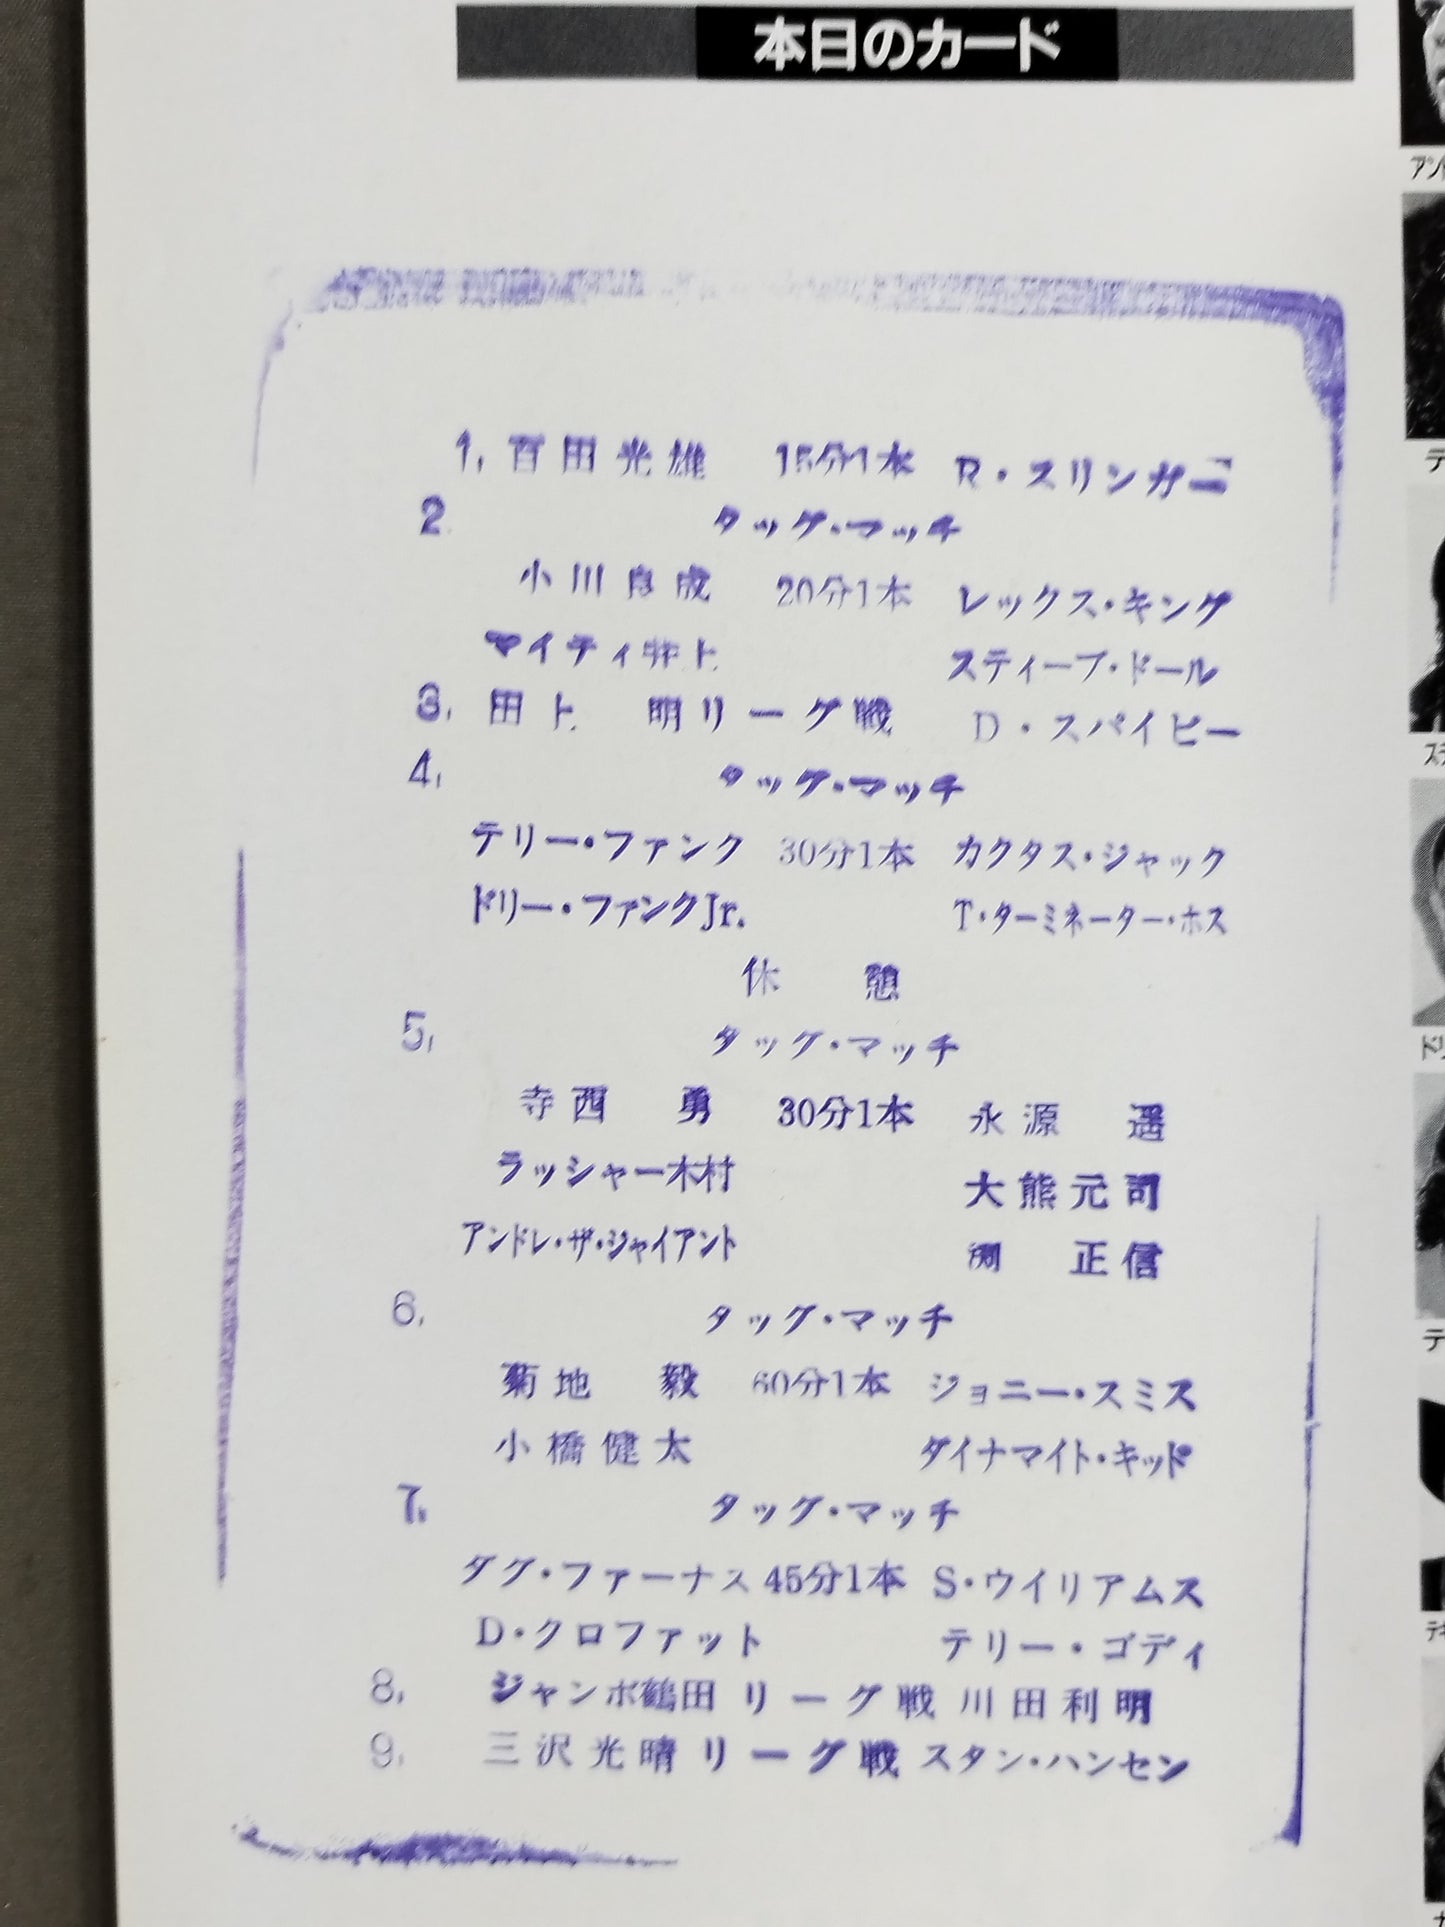 本日のカード
1, 百田光雄 15分1本 R・スリンガー
2 タッグ・マッチ
小川良成 20分1本 レックス・キング
マイティ井上 スティーブ・ドール
3, 田上 明 リーグ戦 D・スパイビー
4, タッグ・マッチ
テリー・ファンク 30分1本 カクタス・ジャック
ドリー・ファンクJr. T・ターミネーター・ホス
休 憩
5, タッグ・マッチ
寺西 勇 30分1本 永源 遥
ラッシャー木村 大熊元司
アンドレ・ザ・ジャイアント 渕 正信
6, タッグ・マッチ
菊地 毅 60分1本 ジョニー・スミス
小橋健太 ダイナマイト・キッド
7, タッグ・マッチ
ダグ・ファーナス 45分1本 S・ウイリアムス
D・クロファット テリー・ゴディ
8, ジャンボ鶴田 リーグ戦 川田利明
9, 三沢光晴 リーグ戦 スタン・ハンセン